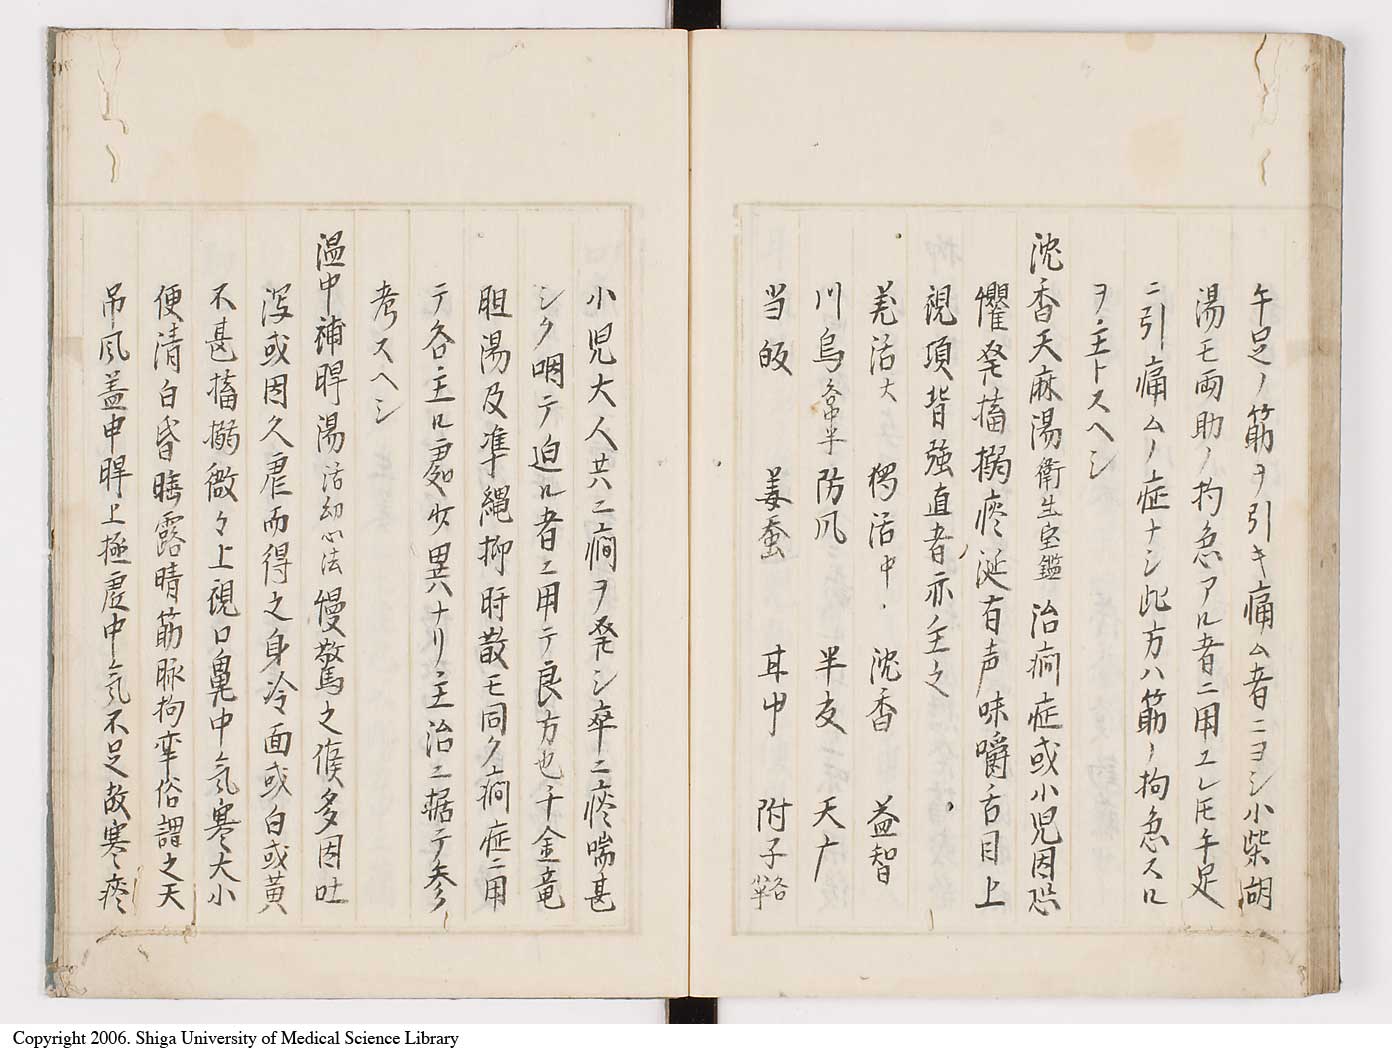 午足ノ筋ヲ引キ痛ム者ニヨシ小柴胡
湯モ両助ノ拘急アル者ニ用ユレ𪜈午足
ニ引痛ムノ症ナシ此方ハ筋ノ拘急スル
ヲ主トスヘシ
沈香天麻湯衛生宝鑑治癇症或小児因恐
懼発搐搦痰涎有声味嚼舌目上
視項背強直者亦主之
羌活大 独活中 沈香 益智
川烏各常半 防风 半夏 天广
当皈 姜蚕 耳中 附子各半
小児大人共ニ癇ヲ発シ卒ニ痰喘甚
シク咽テ迫ル者ニ用テ良方也千金竜
胆湯及準縄抑肝散モ同ク癇症ニ用
テ各主ル処少異ハナリ主治ニ据テ参
考スヘシ
温中補脾湯活幼心法慢驚之候多因吐
泻或因久虐而得之身冷面或白或黄
不甚搐搦微々上視口鼻中気寒大小
便清白昏睡露睛筋脉拘牽俗謂之天
吊风蓋申脾上極虚中気不足故寒痰